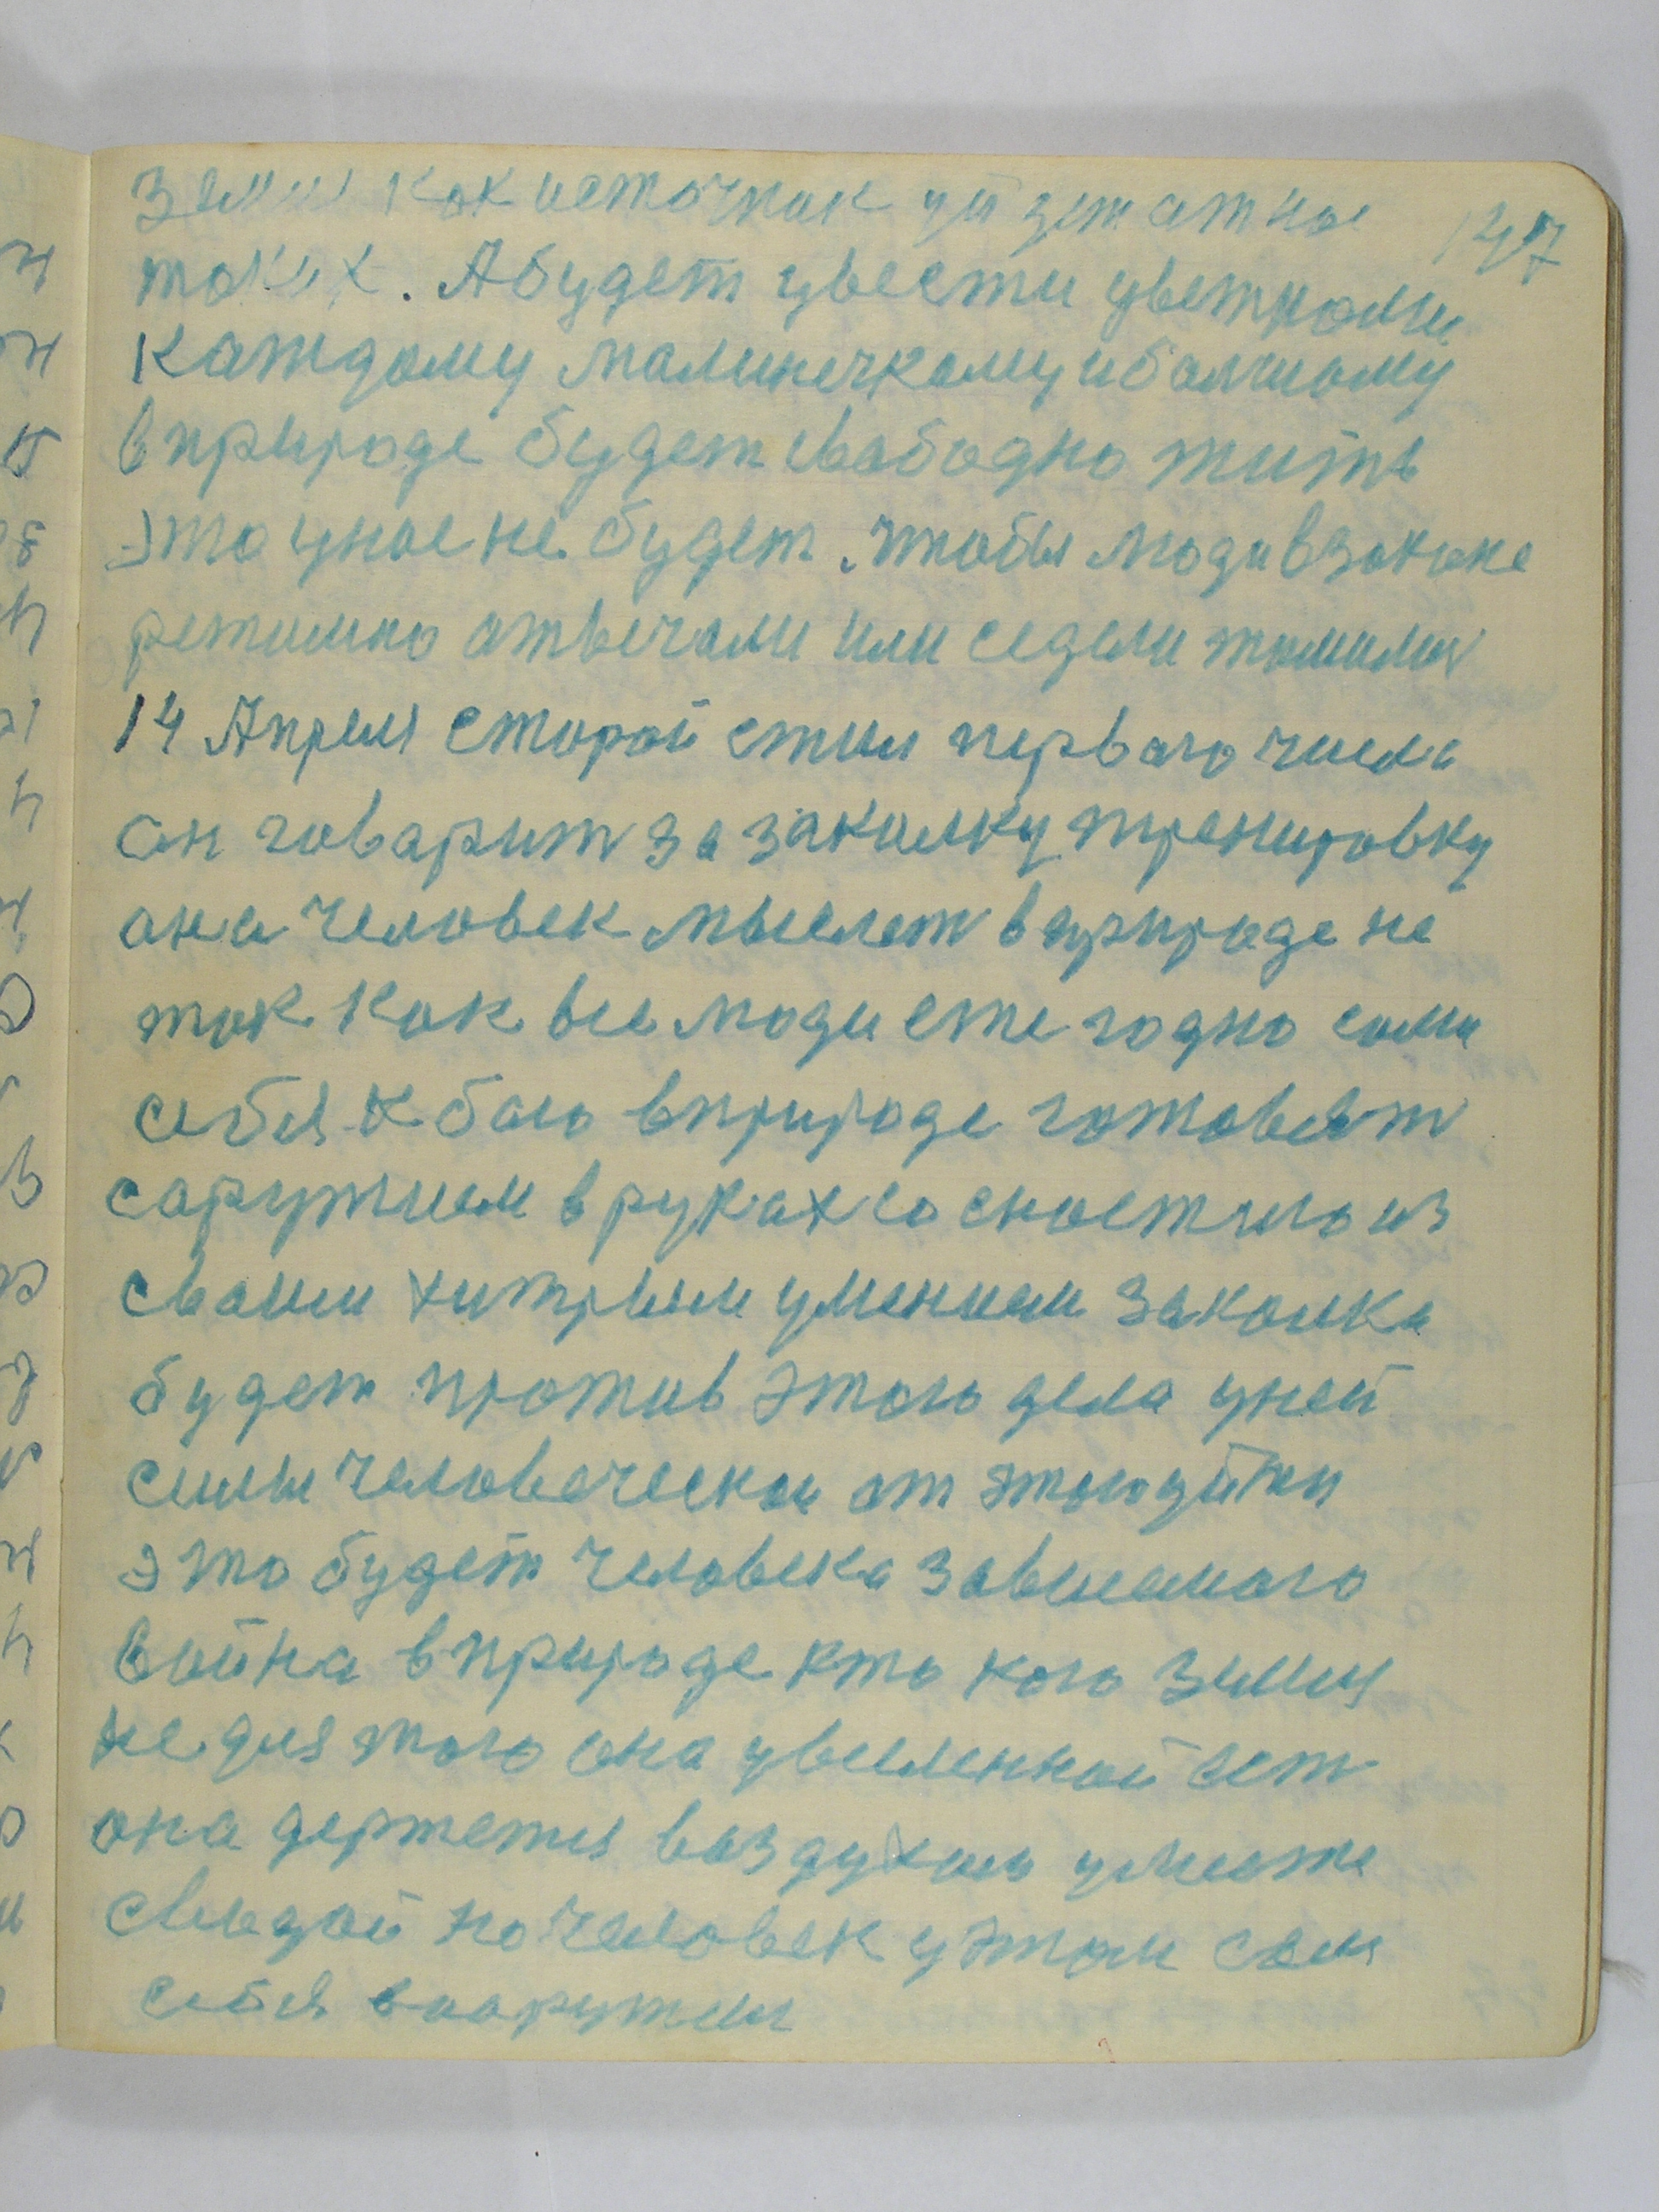 земли как источник уйдет от нас
147
таких. А будет цвести цветками
каждому малинечкому и балшому
в природе будет свабодно жить
это у нас не будет. чтобы люди в законе
режимно атвечали или седели томилис
14 Апреля старой стил перваго числа
он говарит за закалку тренировку
она человек мыслет в природе не
так как все люди ежегодно сами
себя к бою в природе готовят
саружием в руках со снастию из
сваим хитрым умением закалка
будет против этого дела у ней
силы человеческаи от этого уйти
это будет человека зависемаго
война в природе кто кого земля
не для того она у вселенной ест
она держетця воздухом у месте
с водой но человек у этом сам
себя вооружил